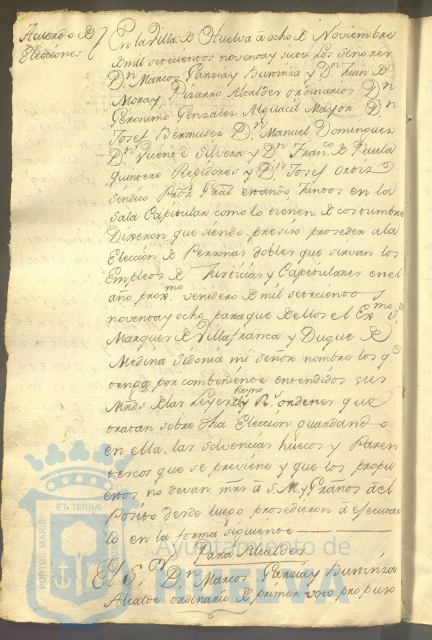 Acuerdo de
Elecciones
En la Villa de Huelva a ocho de Noviembre
de mil setecientos noventa y siete los Señores
Dn. Marcos Garzia y Bwinza y Dn. Juan de
Mora y Pizarro Alcaldes ordinarios Dn.
Geronimo Gonzalez Alguacil Mayor Dn.
Josef Bermudez Dn. Manuel Dominguez
Dn. Vicente Silvera y Dn. Franco. de Paula
quintero Rexidores y Dn. Josef Ortiz
Sindico Pror. Gral. estando Juntos en la
Sala Capitular como lo tienen de costumbre
Dixeron que siendo preciso proceder a la
Elección de Personas dobles que sirvan los
Empleos de Justicias y Capitulares en el
año proxmo. venidero de mil setecientos
noventa y ocho para que de ellos el Exmo. Sr.
Marques de Villafranca y Duque de
Medina Sidonia mi Señor nombre los qe.
tenga por combeniente entendidos sus
Mrds. de las Leyes del Reyno y Rs. ordenes que
tratan sobre dha Elección guardando
en ella las solvencias huecos y Paren
tescos que se previene y que los propu
estos no devan mrs. a S.M. y Granos al
Posito desde luego procedieron a efecutar
lo en la forma siguiente
Para Alcaldes
El Sor. Dn. Marcos Garzia y
Alcalde ordinario de primer voto propuso
PORTUS MARIS
ET TERRAE
Ayuntamiento de
HUELVA